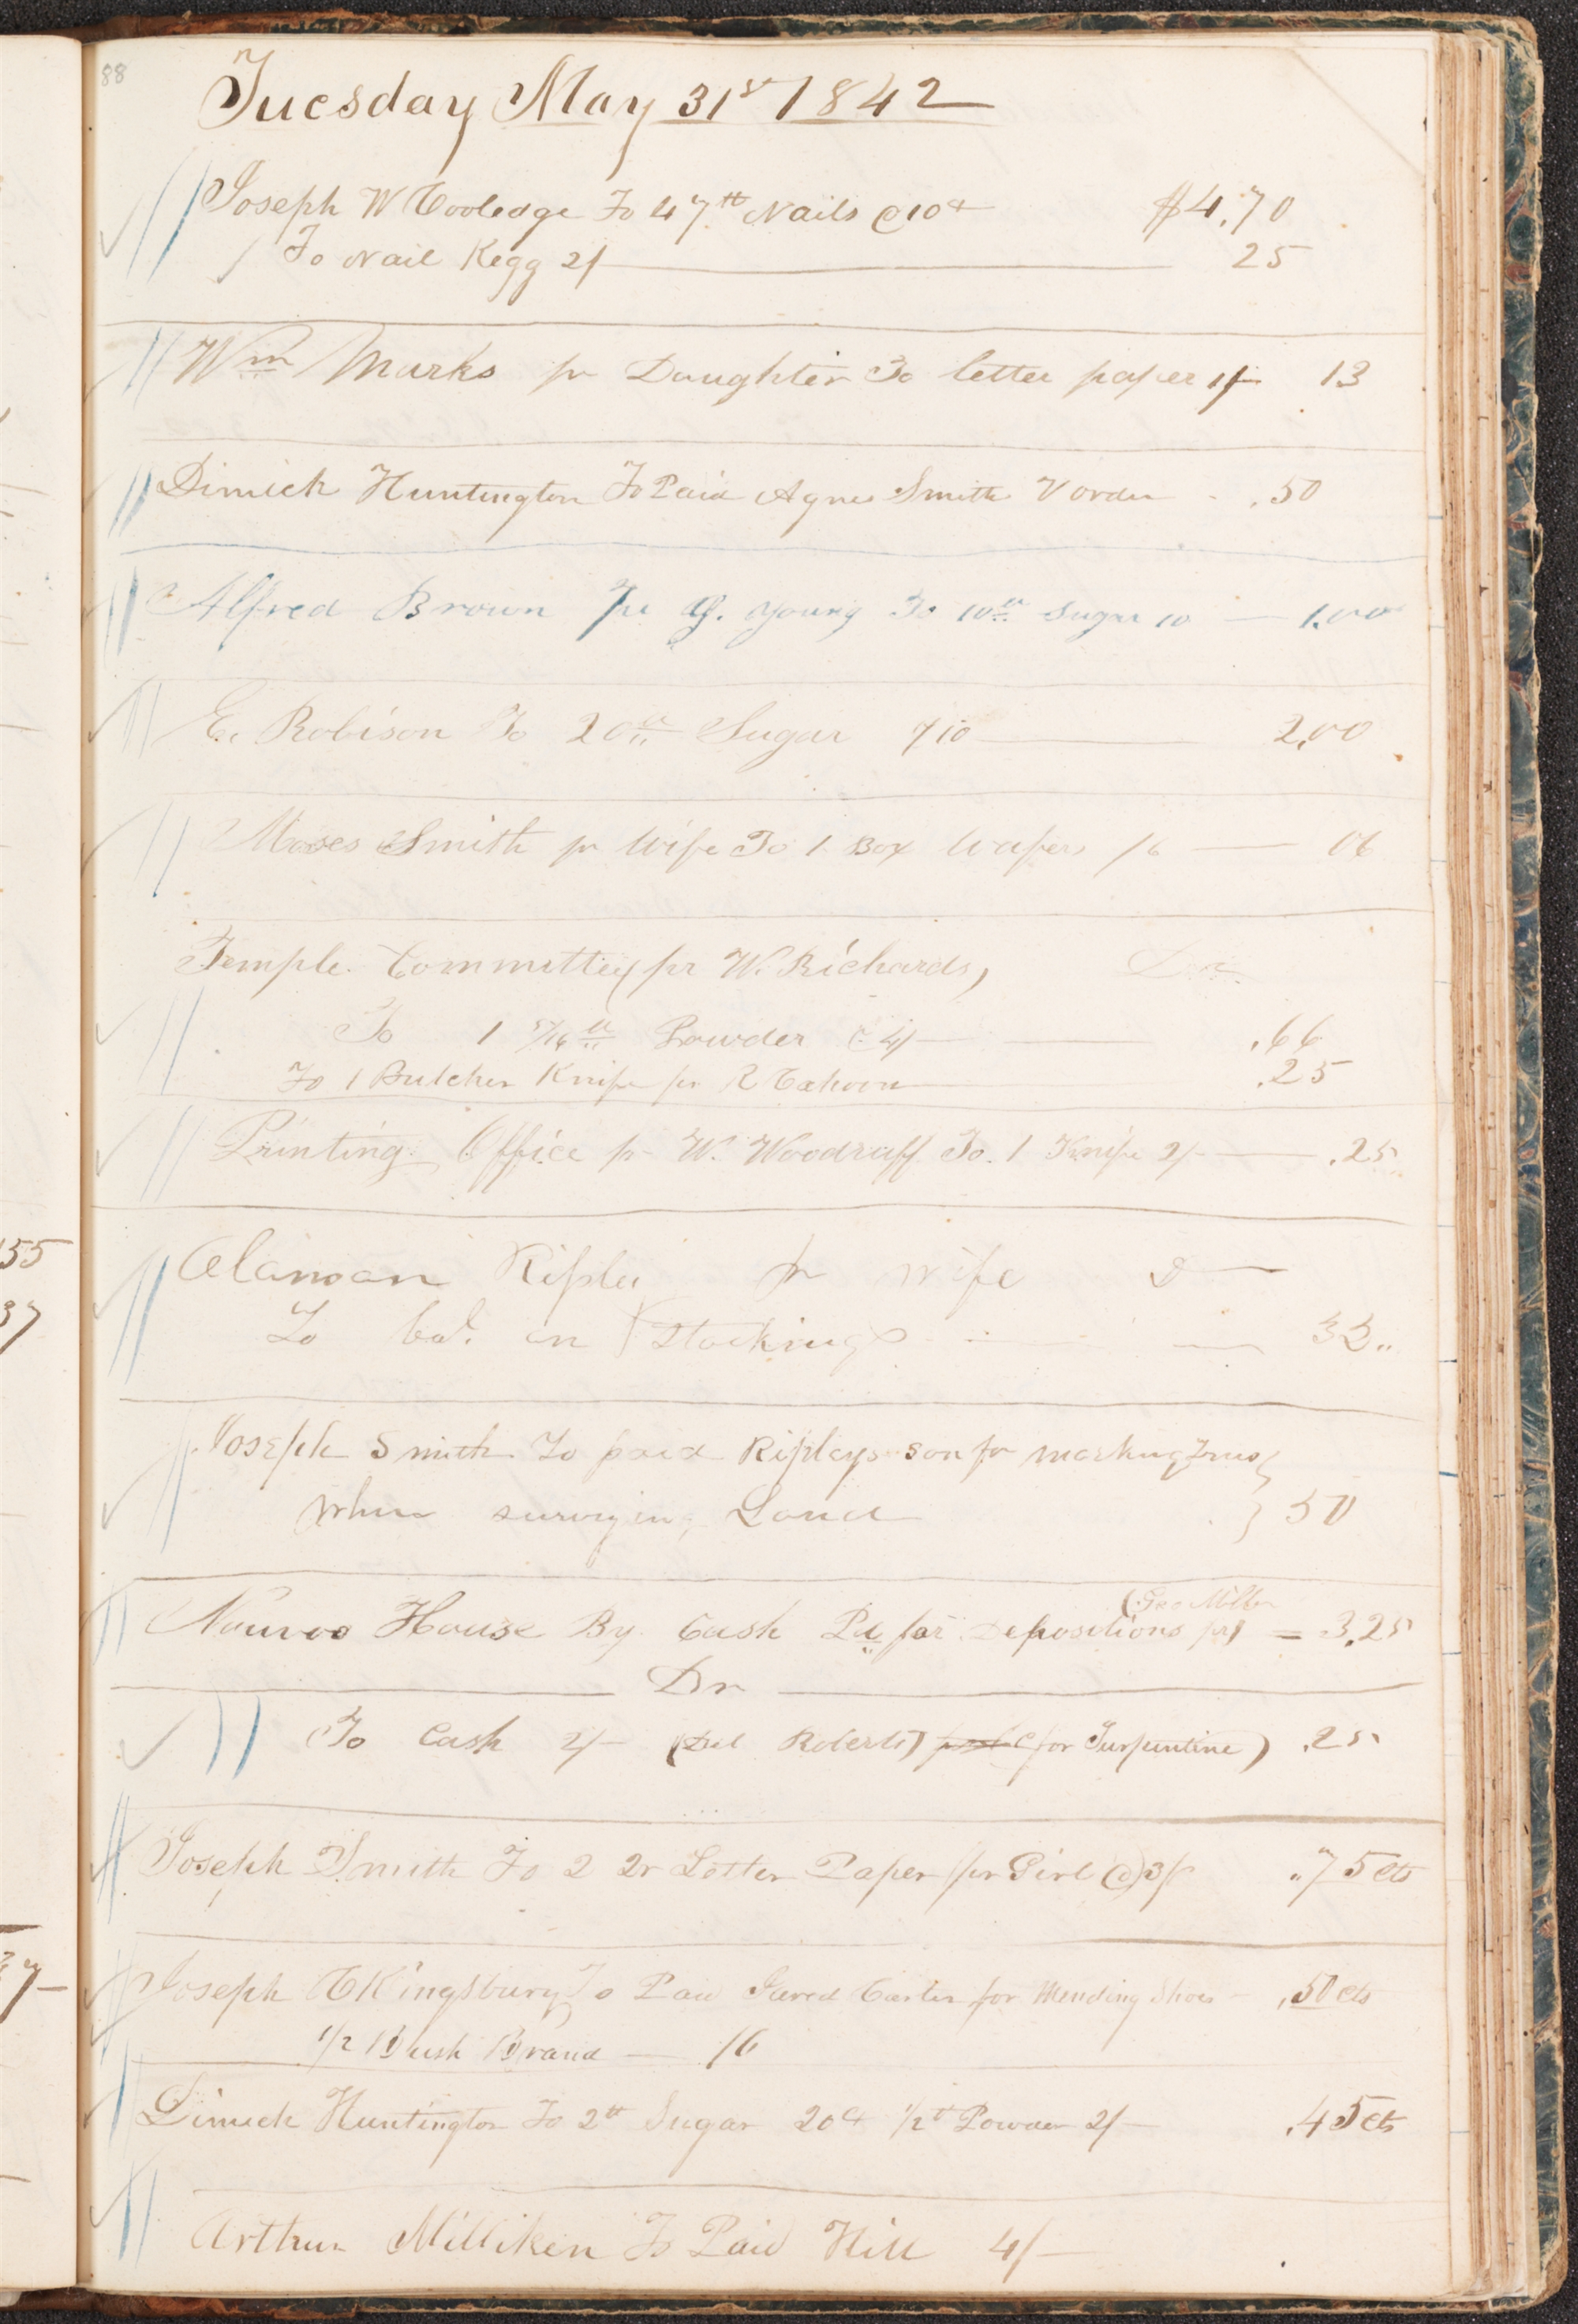 88
Tuesday May 31st 1842
Joseph W Cooledge To 47 ℔ Nails @ 10¢ $4.70
To Nail Kegg 2/ 25
Wm Marks pr Daughter To letter paper 1/- 13
Dimick Huntington To Paid Agnes Smith V order .50
Alfred Brown Pr A. Young To 10 ℔ Sugar 10 — 1.00
E. Robison To 20 ℔ Sugar 10 — 2,00
Moses Smith pr Wife To 1 Box Wafers /6 — 06
Temple Committey (pr W. Richards) Dr
To 1 5/16 ℔ Powder @ 4/ — .66
To 1 Butcher Knife pr R Cahoon — .25
Printing Office pr W. Woodruff To 1 Knife 2/- — .25
Alanson Ripley pr wife D—
To bal. on Stockings — 33
Joseph Smith To paid Ripleys son for marking Trees
when surveying Land } 50
(Geo Miller
Nauvoo House By Cash Pd for Depositions pr) = 3,25
Dr
To Cash 2/- (Del Roberts) for Turpentine) .25
Joseph Smith To 2 Qr Letter Paper pr Girl @ 3/ .75 cts
Joseph C Kingsbury To Paid Jared Carter for Mending Shoes — ,50 cts
1/2 Bush Brand — /6
Dimick Huntington To 2 ℔ Sugar 20¢ 1/2 ℔ Powder 2/- .45 cts
Arthur Milliken To Paid Hill 4/-
155
37
7-